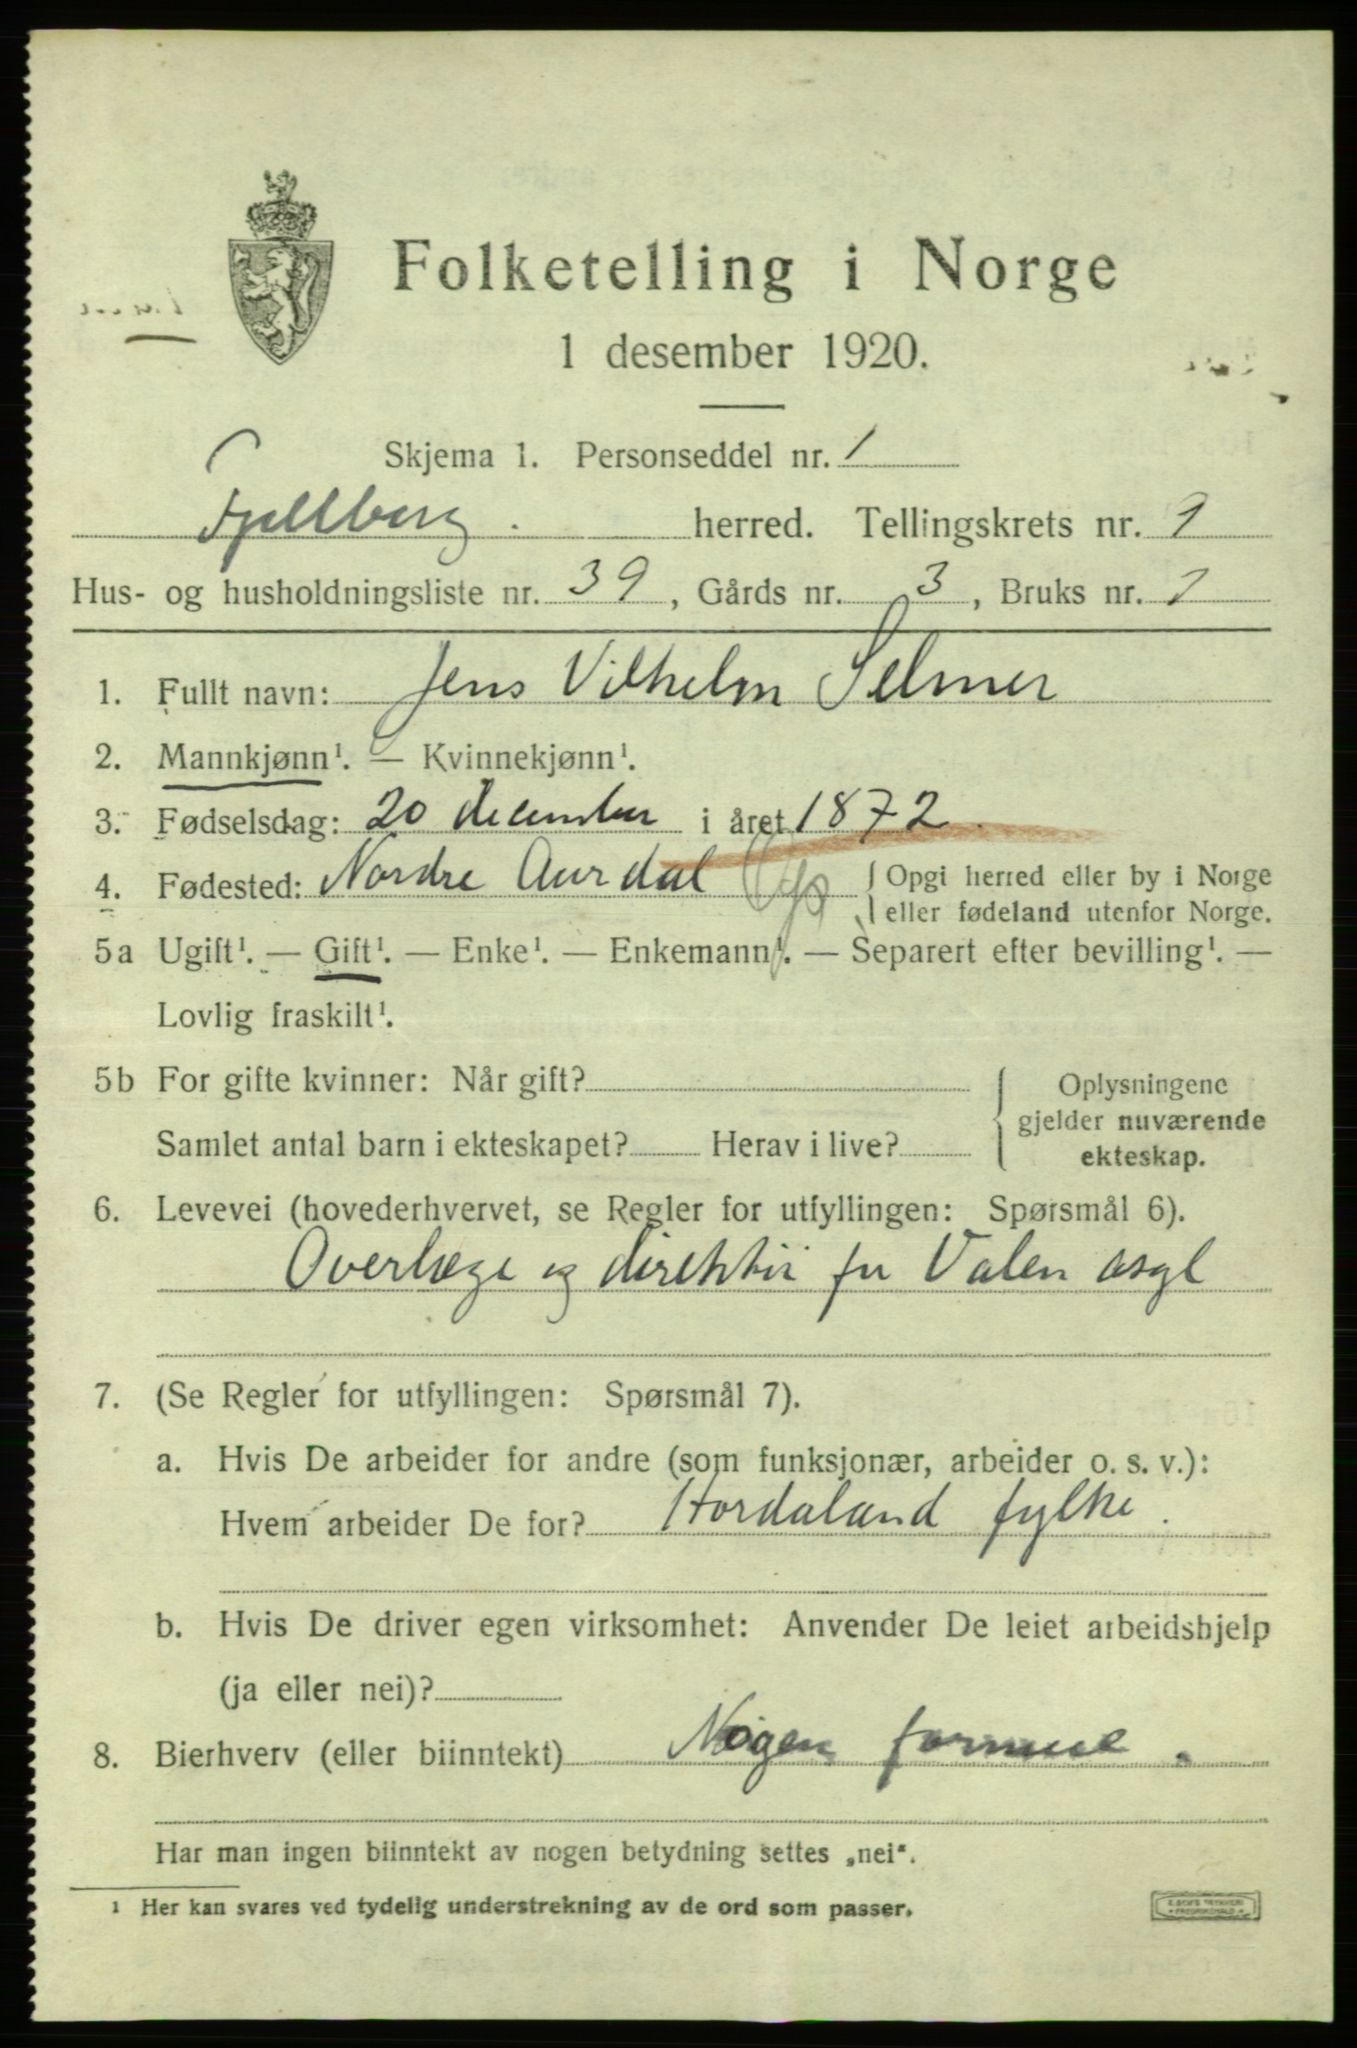 Folketelling i Norge
1 desember 1920.
Skjema 1. Personseddel nr. 1
Fjellberg. herred. Tellingskrets nr. 9
Hus- og husholdningsliste nr. 39, Gårds nr. 3, Bruks nr. 1
1. Fullt navn: Jens Vilhelm Selmer
2. Mannkjønn¹. — Kvinnekjønn¹.
3. Fødselsdag: 20 december i året 1872.
4. Fødested: Nordre Aurdal { Opgi herred eller by i Norge
eller fødeland utenfor Norge.
5a Ugift¹. — Gift¹. — Enke¹. — Enkemann¹. — Separert efter bevilling¹. —
Lovlig fraskilt¹.
5b For gifte kvinner: Når gift? { Oplysningene
gjelder nuværende
Samlet antal barn i ekteskapet? Herav i live? ekteskap.
6. Levevei (hovederhvervet, se Regler for utfyllingen: Spørsmål 6).
Overlæge og direktør for Valen asyl
7. (Se Regler for utfyllingen: Spørsmål 7).
a. Hvis De arbeider for andre (som funksjonær, arbeider o. s. v.):
Hvem arbeider De for? Hordaland fylke.
b. Hvis De driver egen virksomhet: Anvender De leiet arbeidshjelp
(ja eller nei)?
8. Bierhverv (eller biinntekt) Nogen formue.
Har man ingen biinntekt av nogen betydning settes „nei“.
¹ Her kan svares ved tydelig understrekning av de ord som passer.